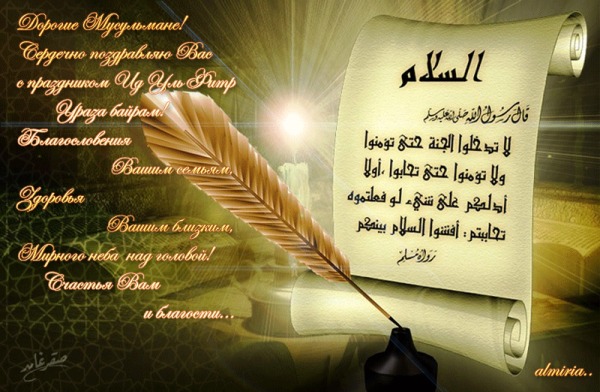 Дорогие Мусульмане!
Сердечно поздравляю Вас
с праздником Ид Уль Фитр
Ураза байрам!
Благословения
Вашим семьям,
Здоровья
Вашим близким,
Мирного неба над головой!
Счастья Вам
и благости...
السلام
قال رسول الله صلى الله عليه وسلم
لا تدخلوا الجنة حتى تؤمنوا
ولا تؤمنوا حتى تحابوا ,أولا
أدلكم على شيء لو فعلتموه
تحاببتم: أفشوا السلام بينكم
رواه مسلم
almiria..